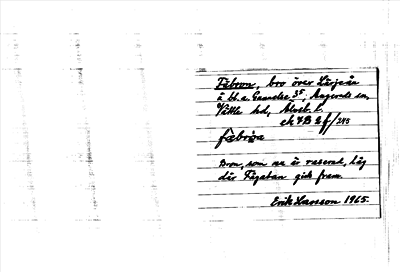 Fäbron, bro över Lärjeån
å bl.a. Gunnilse 3⁵, Angereds sn,
Vättle hd, Älvsb. l.
ek 7B 2f/345
fä̀bróa
Bron, som nu är raserad, låg
där Fägatan gick fram.
Erik Larsson 1965.